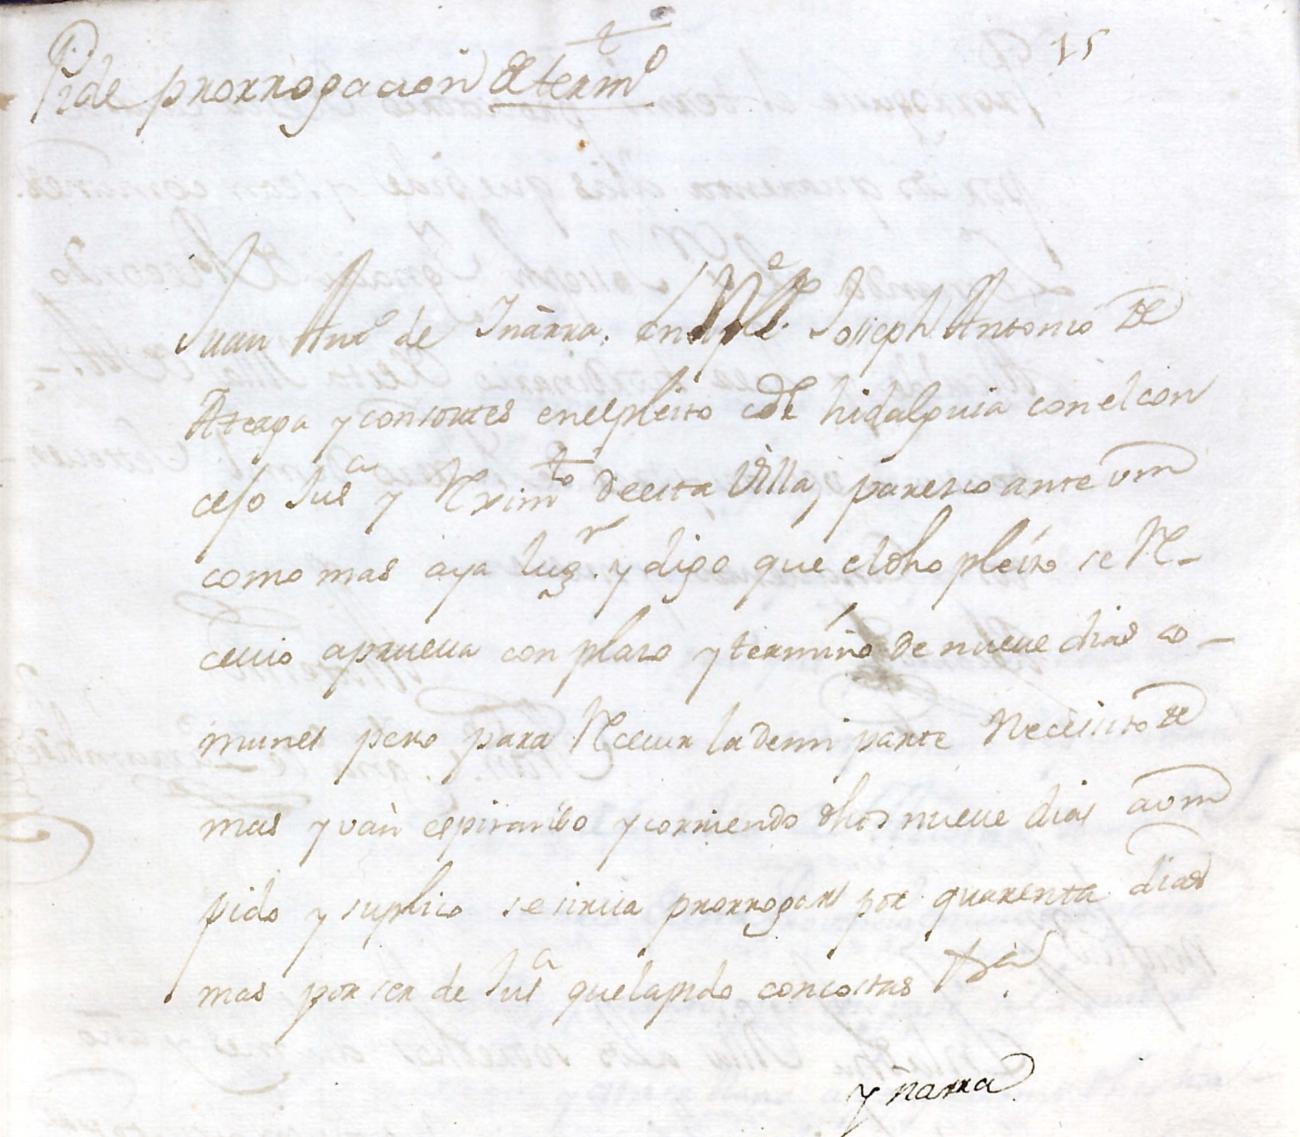 15
Pide prorrogacion de termº
Juan Antº de Ynarra. en nre. de Joseph Antonio de
Ateaga y consortes en el pleito de hidalguia con el con
cejo Jusª y Reximtº de esta Villa, parezco ante vm
como mas aya lugr. y digo que el dho pleito se Re-
cevio a prueva con plazo y termino de nueve dias co-
munes pero para Recevir la de mi parte Necessito de
mas y van espirando y corriendo dhos nueve dias a vm
pido y suplico se sirva prorrogar por quarenta dias
mas por ser de Jusª que la pido con costas
Ynarra